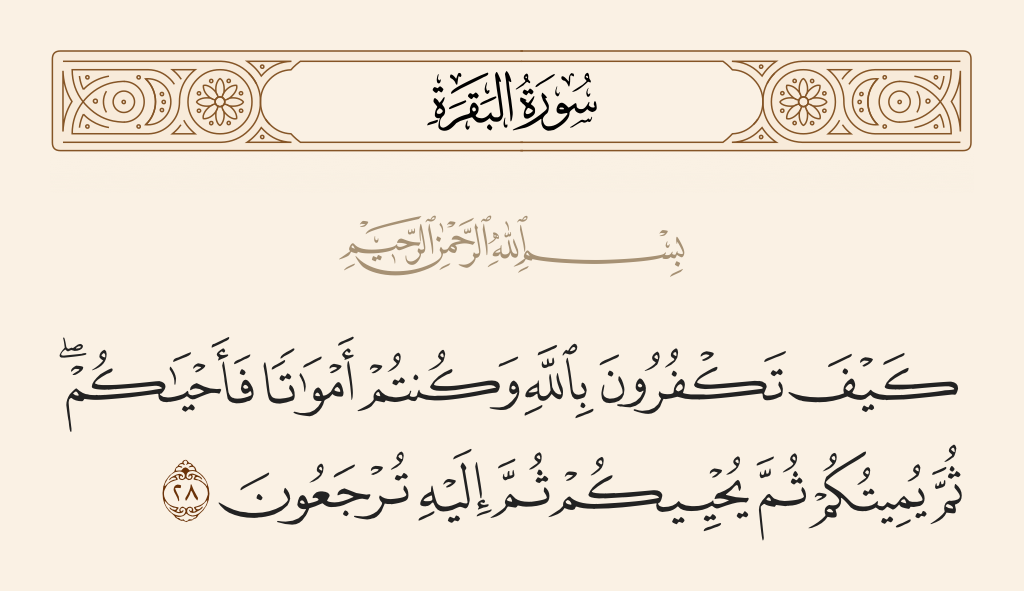 سُورَةُ البَقَرَةِ
بِسْمِ ٱللَّهِ ٱلرَّحْمَٰنِ ٱلرَّحِيمِ
كَيْفَ تَكْفُرُونَ بِٱللَّهِ وَكُنتُمْ أَمْوَٰتًا فَأَحْيَـٰكُمْ ۖ
ثُمَّ يُمِيتُكُمْ ثُمَّ يُحْيِيكُمْ ثُمَّ إِلَيْهِ تُرْجَعُونَ ٢٨